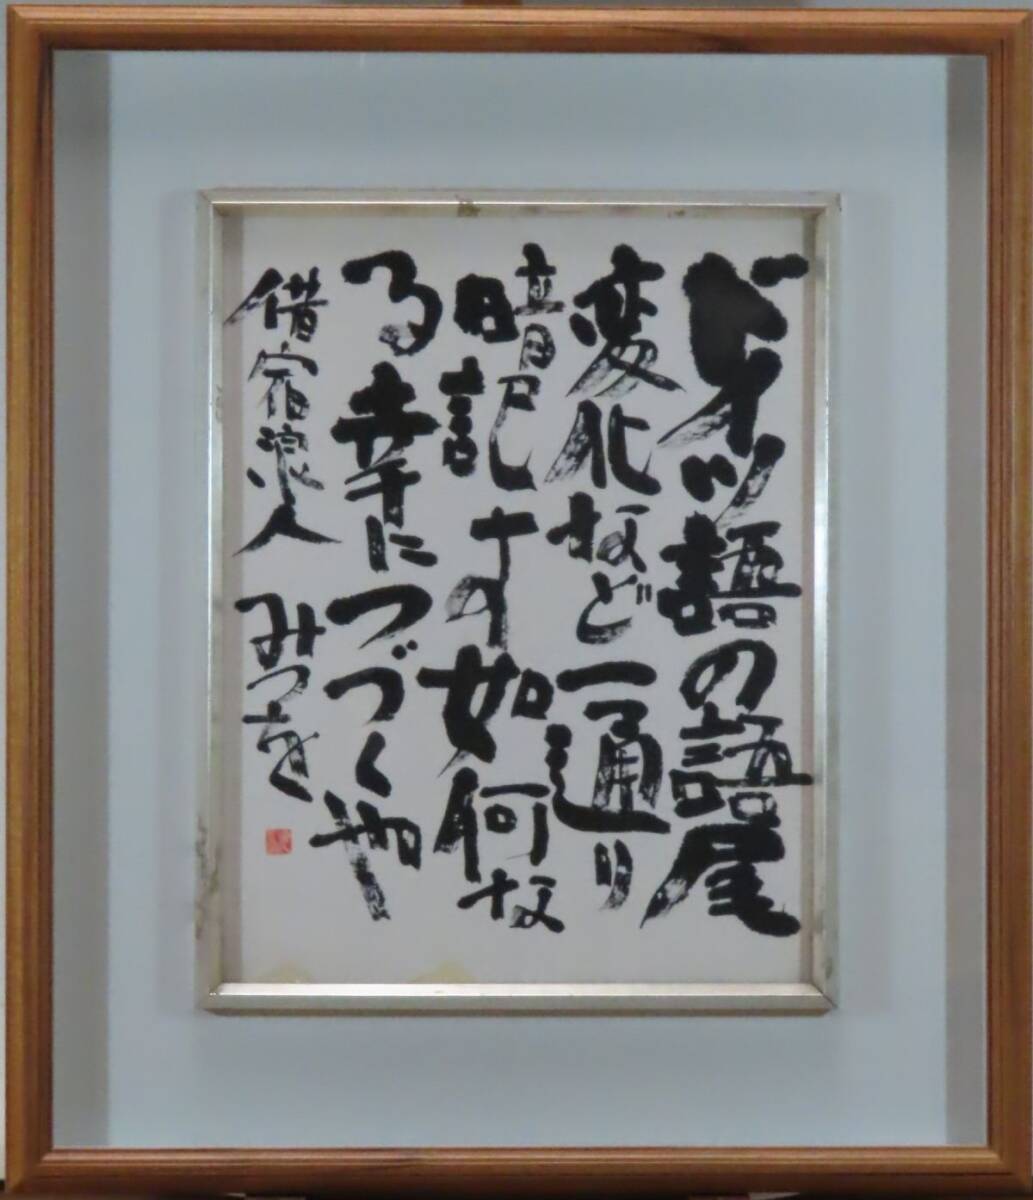 ドイツ語の語尾
変化など一通り
暗記す如何な
る幸につづくや
借宿浪人 みつを